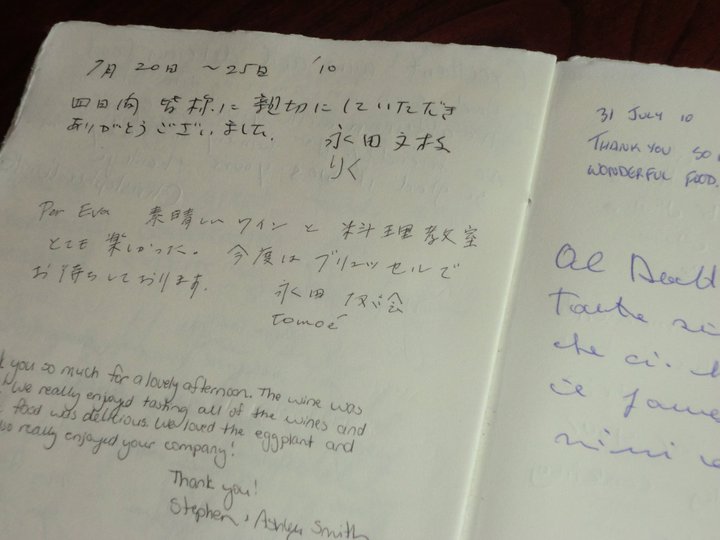 7月20日 〜25日 '10
四日間 皆様に 親切にしていただき
ありがとうございました。
永田文枝
りく
Per Eva 素晴しいワインと料理教室
とても楽しかった。今度はブリュッセルで
お待ちしております。
永田
tomoé
you so much for a lovely afternoon. The wine was
We really enjoyed tasting all of the wines and
food was delicious. We loved the eggplant and
really enjoyed your company!
Thank you!
Stephen & Ashley Smith
31 JULY 10
THANK YOU SO
WONDERFUL FOOD.
che ci.